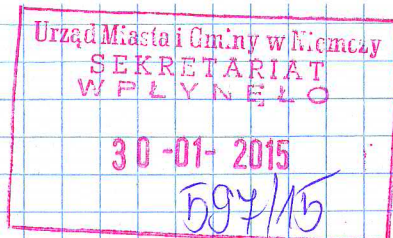 Urząd Miasta i Gminy w Niemczy
SEKRETARIAT
WPŁYNĘŁO
30-01-2015
597/15